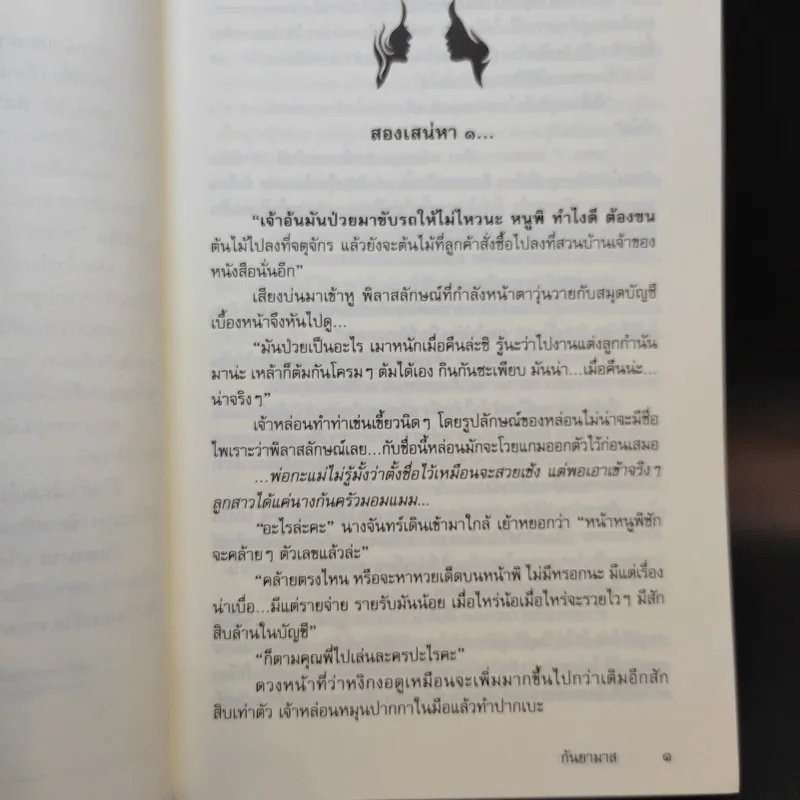 สองเสน่หา ๑...
“เจ้าอ้นมันป่วยมาขับรถให้ไม่ไหวนะ หนูพิ ทำไงดี ต้องขน
ต้นไม้ไปลงที่จตุจักร แล้วยังจะต้นไม้ที่ลูกค้าสั่งซื้อไปลงที่สวนบ้านเจ้าของ
หนังสือนั่นอีก”
เสียงบ่นมาเข้าหู พิลาสลักษณ์ที่กำลังหน้าตาวุ่นวายกับสมุดบัญชี
เบื้องหน้าจึงหันไปดู...
“มันป่วยเป็นอะไร เมาหนักเมื่อคืนล่ะซิ รู้นะว่าไปงานแต่งลูกกำนัน
มาน่ะ เหล้าก็ต้มกันโครมๆ ต้มได้เอง กินกันซะเพียบ มันน่า...เมื่อคืนน่ะ...
น่าจริงๆ”
เจ้าหล่อนทำท่าเข่นเขี้ยวนิดๆ โดยรูปลักษณ์ของหล่อนไม่น่าจะมีชื่อ
ไพเราะว่าพิลาสลักษณ์เลย...กับชื่อนี้หล่อนมักจะโวยแกมออกตัวไว้ก่อนเสมอ
...พ่อกะแม่ไม่รู้มั้งว่าตั้งชื่อไว้เหมือนจะสวยเช้ง แต่พอเอาเข้าจริงๆ
ลูกสาวได้แค่นางก้นครัวมอมแมม...
“อะไรล่ะคะ” นางจันทร์เดินเข้ามาใกล้ เย้าหยอกว่า “หน้าหนูพิชัก
จะคล้ายๆ ตัวเลขแล้วล่ะ”
“คล้ายตรงไหน หรือจะหาหวยเด็ดบนหน้าพิ ไม่มีหรอกนะ มีแต่เรื่อง
น่าเบื่อ...มีแต่รายจ่าย รายรับมันน้อย เมื่อไหร่น้อเมื่อไหร่จะรวยไวๆ มีสัก
สิบล้านในบัญชี”
“ก็ตามคุณพี่ไปเล่นละครปะไรคะ”
ดวงหน้าที่ว่าหงิกงอดูเหมือนจะเพิ่มมากขึ้นไปกว่าเดิมอีกสัก
สิบเท่าตัว เจ้าหล่อนหมุนปากกาในมือแล้วทำปากเบะ
กันยามาส ๑